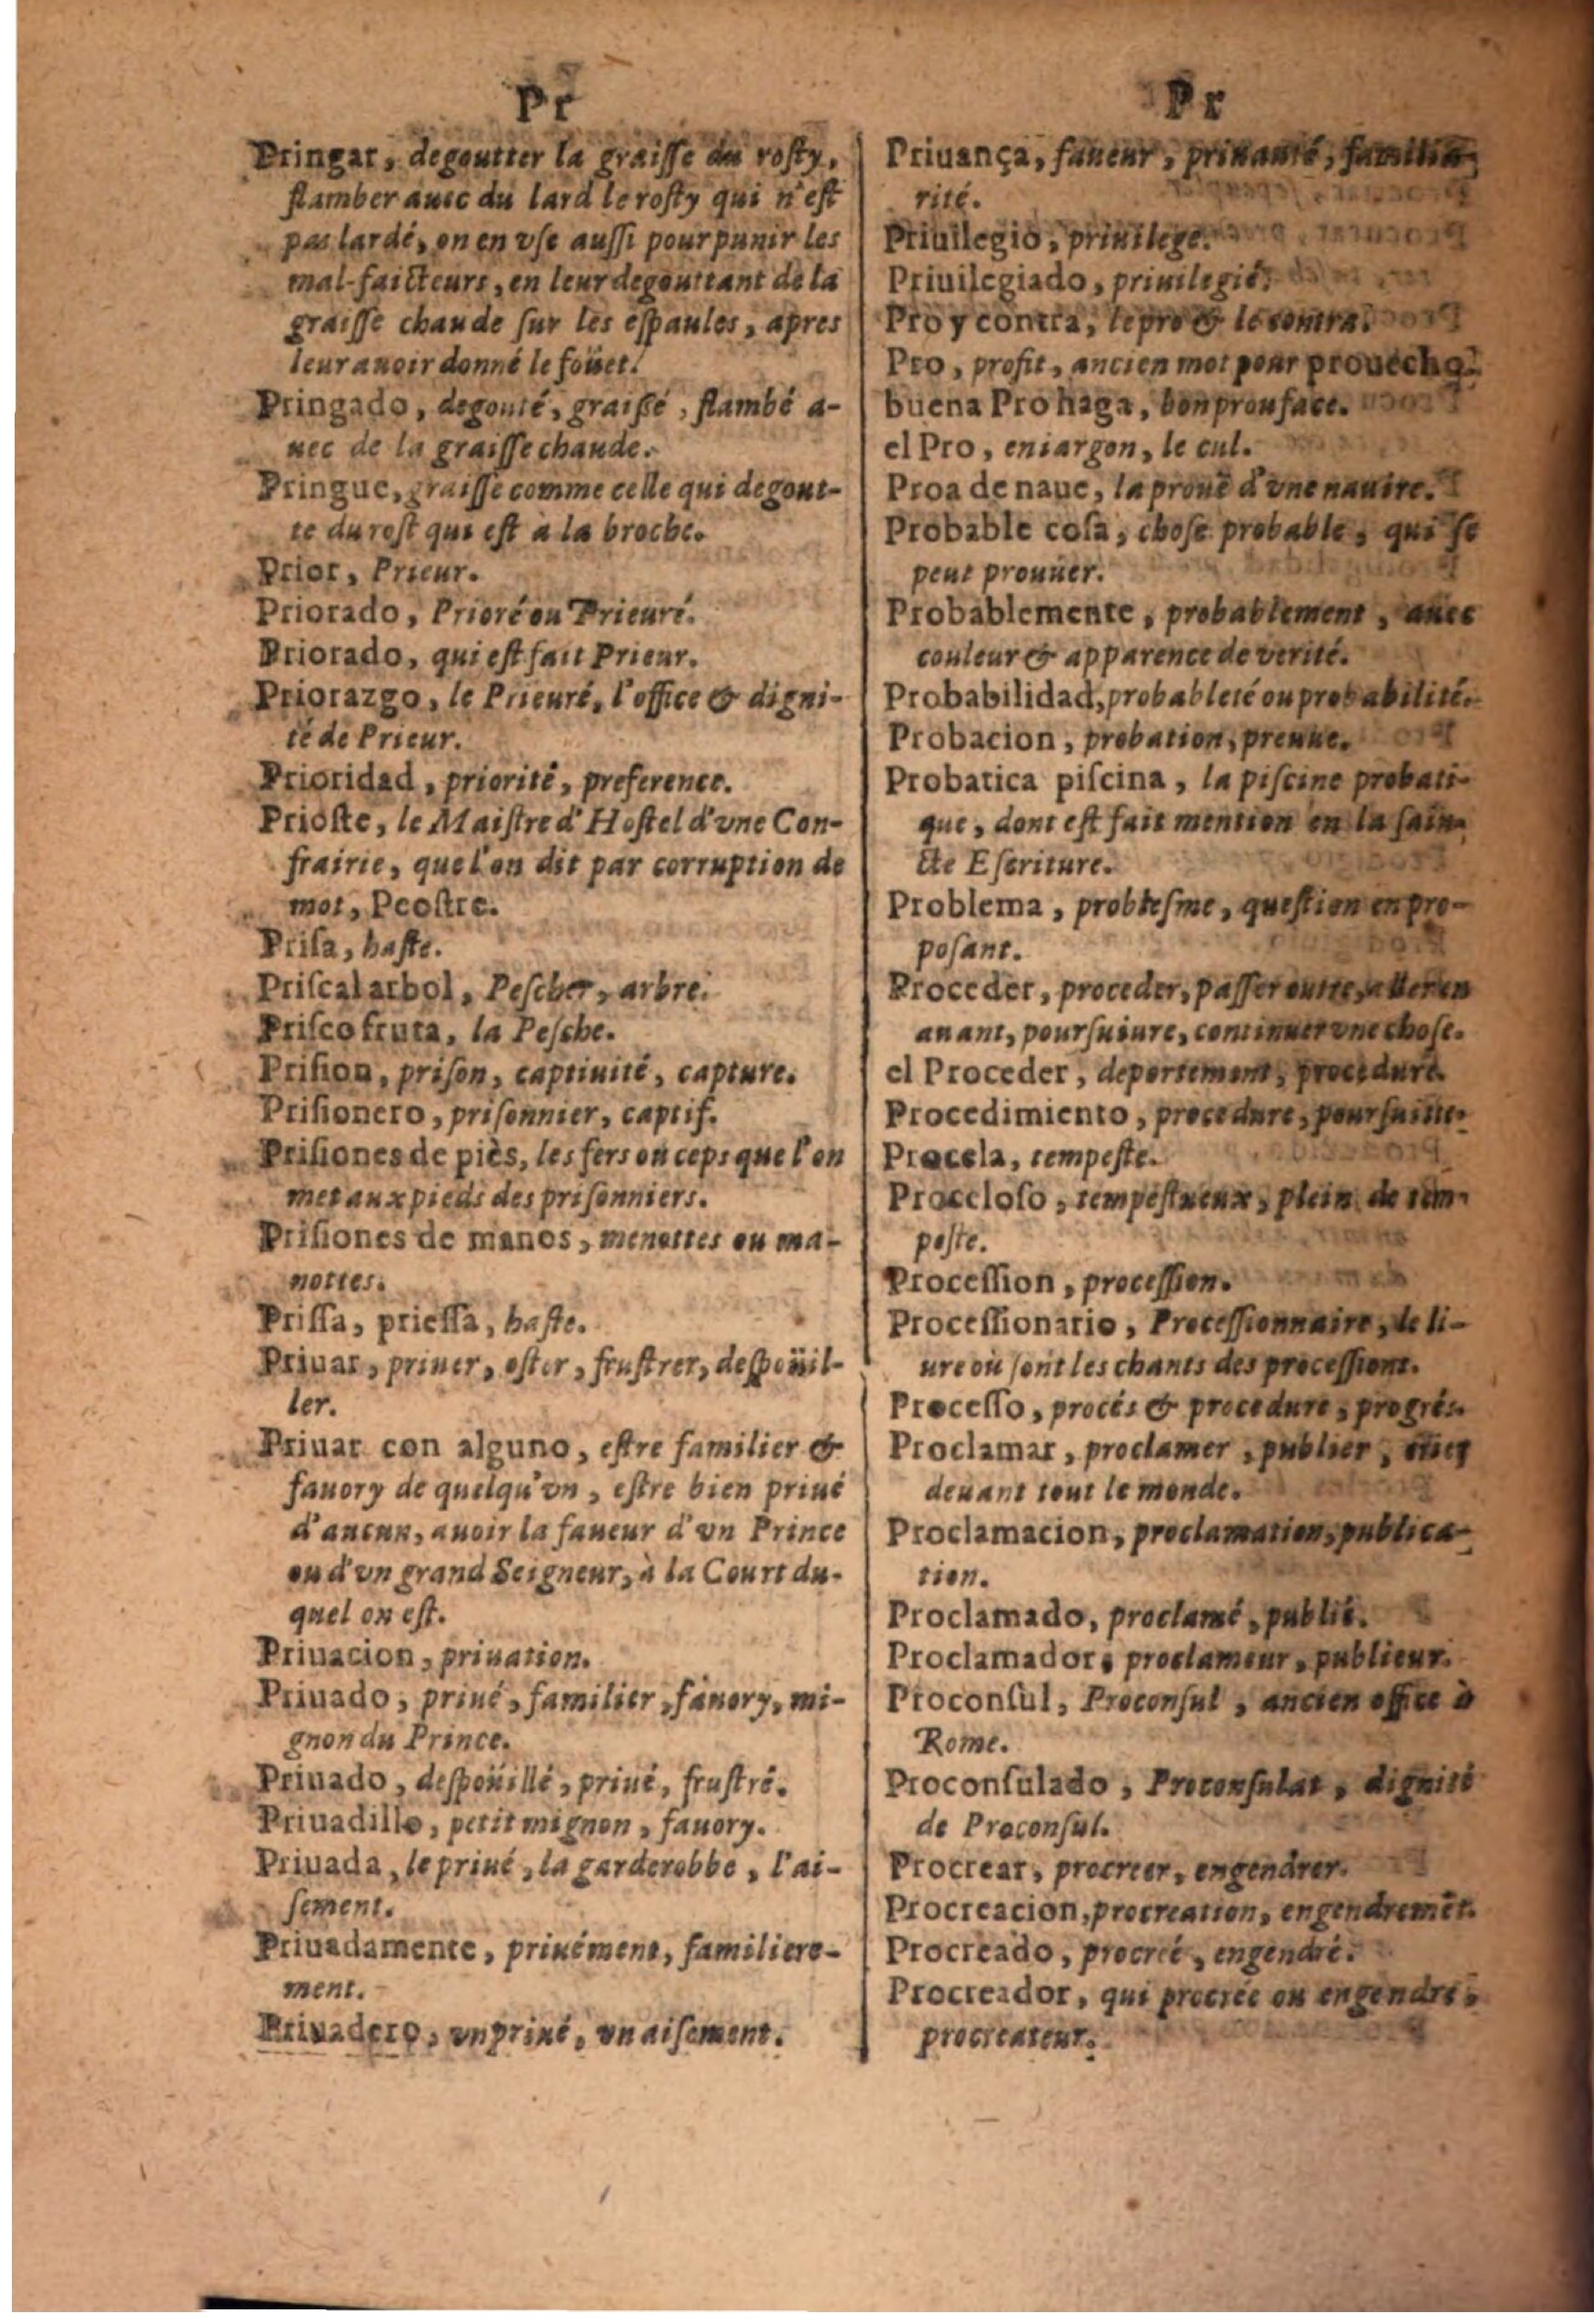 Pr
Pringar, degoutter la graisse du rosty,
flamber auec du lard le rosty qui n'est
pas lardé, on en vse aussi pour punir les
mal-faicteurs, en leur degouttant de la
graisse chaude sur les espaules, apres
leur auoir donné le foüet.
Pringado, degouté, graissé, flambé a-
uec de la graisse chaude.
Pringue, graisse comme celle qui degout-
te du rost qui est à la broche.
Prior, Prieur.
Priorado, Prioré ou Prieuré.
Priorado, qui est fait Prieur.
Priorazgo, le Prieuré, l'office & digni-
té de Prieur.
Prioridad, priorité, preference.
Prioste, le Maistre d'Hostel d'vne Con-
frairie, que l'on dit par corruption de
mot, Peostre.
Prisa, haste.
Priscal arbol, Pescher, arbre.
Prisco fruta, la Pesche.
Prision, prison, captiuité, capture.
Prisionero, prisonnier, captif.
Prisiones de piès, les fers ou ceps que l'on
met aux pieds des prisonniers.
Prisiones de manos, menottes ou ma-
nottes.
Prissa, priessa, haste.
Priuar, priuer, oster, frustrer, despoüil-
ler.
Priuar con alguno, estre familier &
fauory de quelqu'vn, estre bien priué
d'aucun, auoir la faueur d'vn Prince
ou d'vn grand Seigneur, à la Court du-
quel on est.
Priuacion, priuation.
Priuado, priué, familier, fauory, mi-
gnon du Prince.
Priuado, despoüillé, priué, frustré.
Priuadillo, petit mignon, fauory.
Priuada, le priué, la garderobbe, l'ai-
sement.
Priuadamente, priuément, familiere-
ment.
Priuadero, vn priué, vn aisement.
Pr
Priuança, faueur, priuauté, familia-
rité.
Priuilegio, priuilege.
Priuilegiado, priuilegié.
Pro y contra, le pro & le contra.
Pro, profit, ancien mot pour prouecho.
buena Pro haga, bon prou face.
el Pro, en iargon, le cul.
Proa de naue, la prouë d'vne nauire.
Probable cosa, chose probable, qui se
peut prouuer.
Probablemente, probablement, auec
couleur & apparence de verité.
Probabilidad, probableté ou probabilité.
Probacion, probation, preuue.
Probatica piscina, la piscine probati-
que, dont est fait mention en la sain-
cte Escriture.
Problema, problesme, question en pro-
posant.
Proceder, proceder, passer outre, aller en
auant, poursuiure, continuer vne chose.
el Proceder, deportement, procedure.
Procedimiento, procedure, poursuitte.
Procela, tempeste.
Proceloso, tempestueux, plein de tem-
peste.
Procession, procession.
Processionario, Processionnaire, le li-
ure où sont les chants des processions.
Processo, procés & procedure, progrés.
Proclamar, proclamer, publier, crier
deuant tout le monde.
Proclamacion, proclamation, publica-
tion.
Proclamado, proclamé, publié.
Proclamador, proclameur, publieur.
Proconsul, Proconsul, ancien office à
Rome.
Proconsulado, Proconsulat, dignité
de Proconsul.
Procrear, procreer, engendrer.
Procreacion, procreation, engendremēt.
Procreado, procreé, engendré.
Procreador, qui procrée ou engendre,
procreateur.